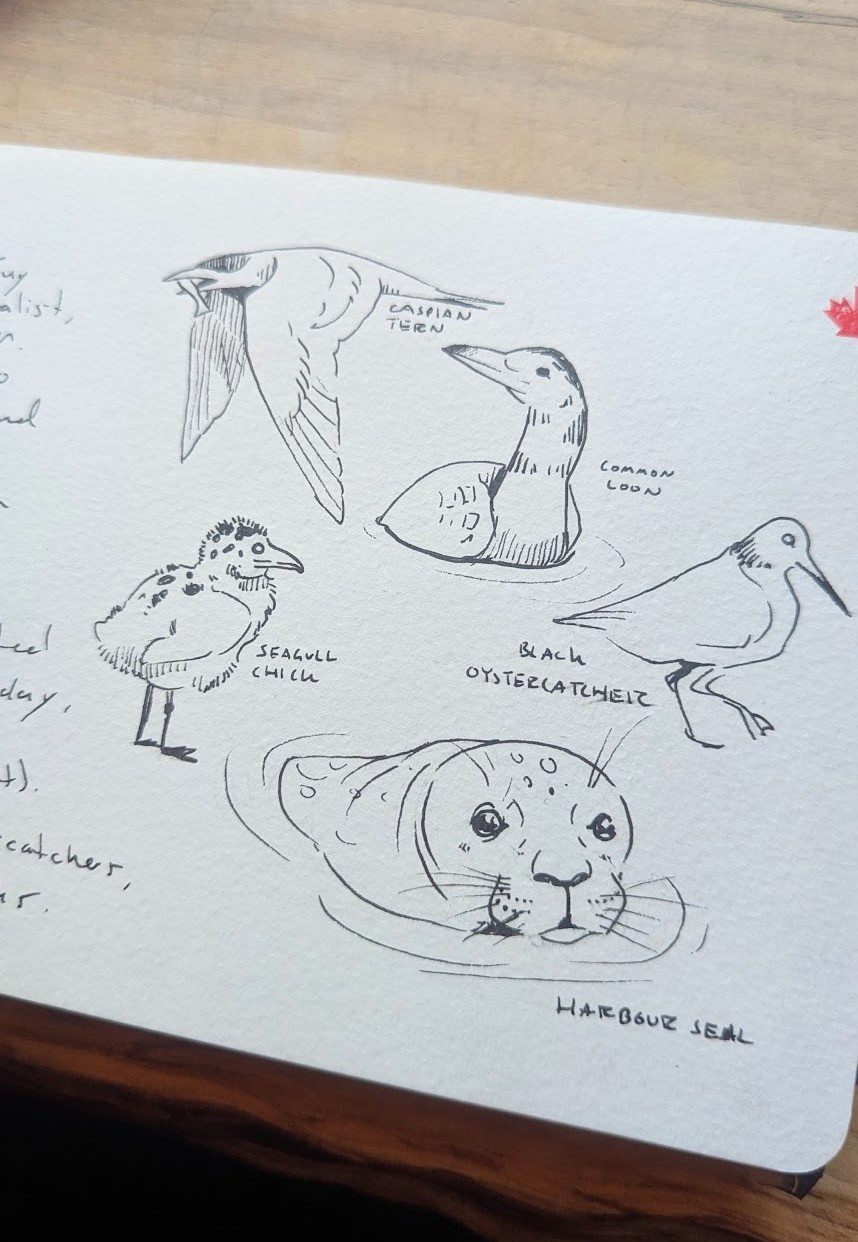 alist,
day,
t).
catchers,
CASPIAN
TERN
COMMON
LOON
SEAGULL
CHICK
BLACK
OYSTERCATCHER
HARBOUR SEAL